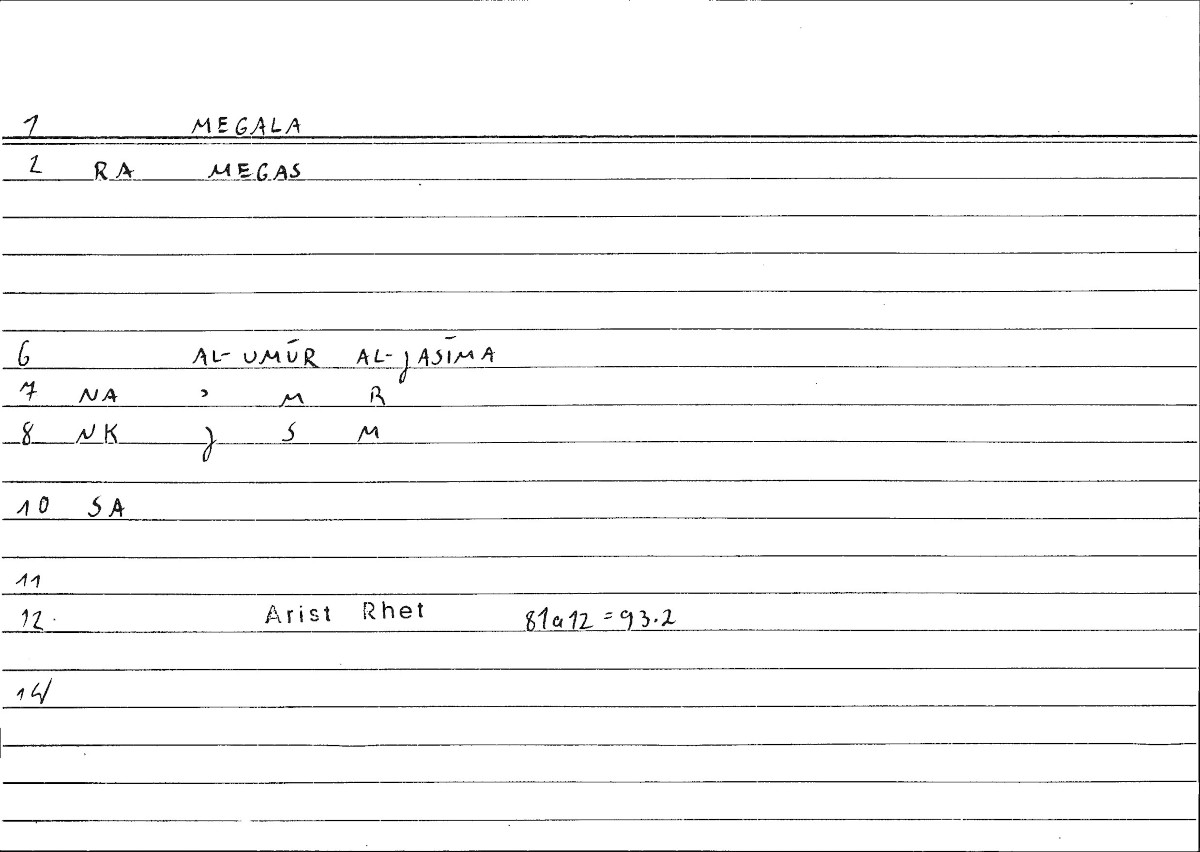 1 MEGALA
2 RA MEGAS
6 AL-UMŪR AL-JASĪMA
7 NA ʾ M R
8 NK J S M
10 SA
11
12. Arist Rhet 81a12=93.2
14